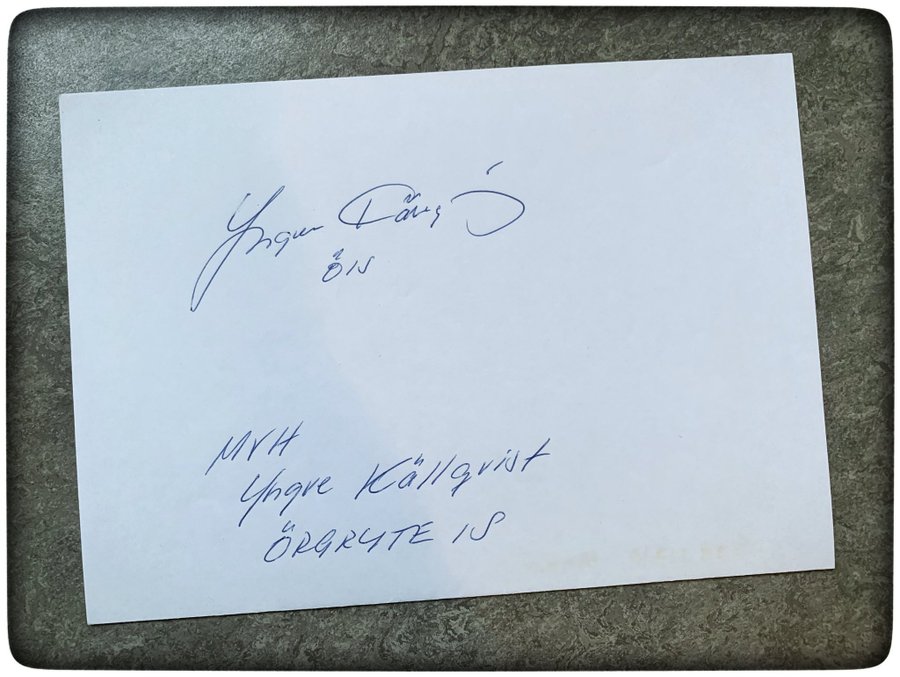 Yngve
ÖIS
MVH
Yngve Källqvist
ÖRGRYTE IS